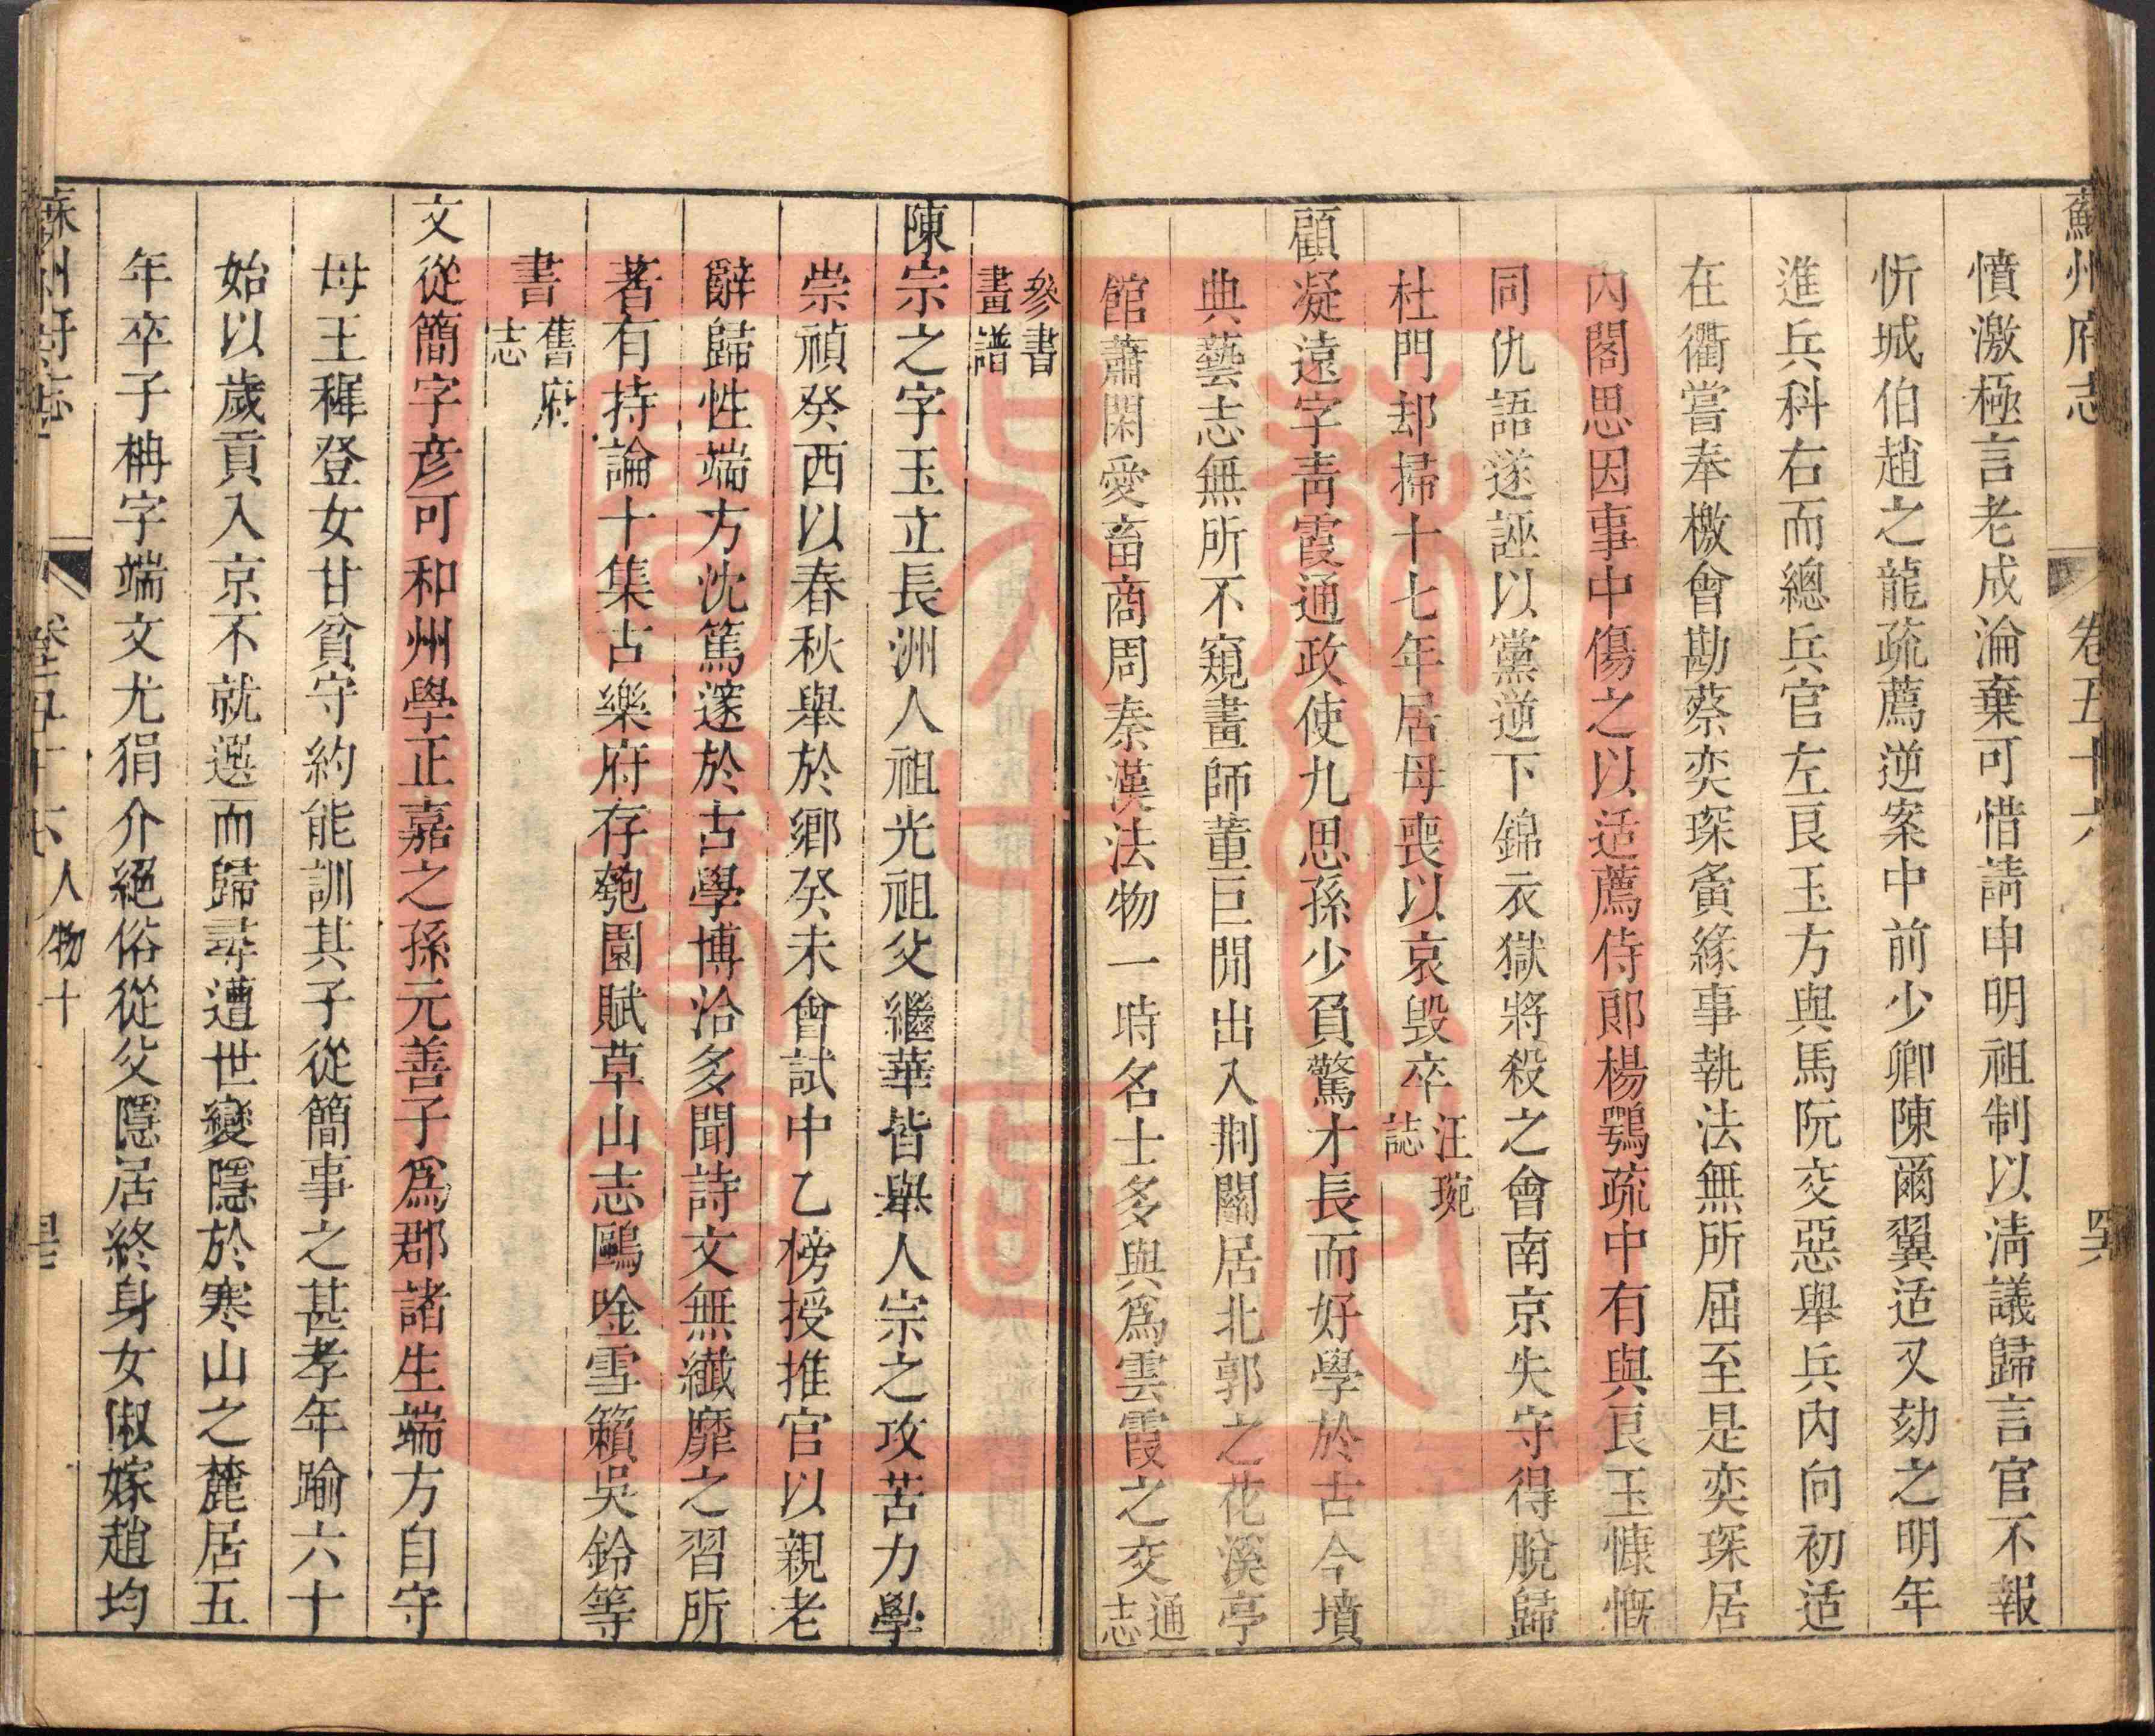 蘇州府志 卷五十六
憤激極言老成淪棄可惜請申明祖制以淸議歸言官不報
忻城伯趙之龍疏薦逆案中前少卿陳爾翼适又劾之明年
進兵科右而總兵官左良玉方與馬阮交惡舉兵內向初适
在衢嘗奉檄會勘蔡奕琛夤緣事執法無所屈至是奕琛居
內閣思因事中傷之以适薦侍郎楊鶚疏中有與良玉慷慨
同仇語遂誣以黨逆下錦衣獄將殺之會南京失守得脫歸
杜門却掃十七年居母喪以哀毁卒汪琬誌
顧凝遠字靑霞通政使九思孫少負驚才長而好學於古今墳
典藝志無所不窺畫師董巨閒出入荆關居北郭之花溪亭
館蕭閑愛畜商周秦漢法物一時名士多與爲雲霞之交通志
參書畫譜
陳宗之字玉立長洲人祖光祖父繼華皆舉人宗之攻苦力學
崇禎癸酉以春秋舉於鄉癸未會試中乙榜授推官以親老
辭歸性端方沈篤邃於古學博洽多聞詩文無纖靡之習所
著有持論十集古樂府存匏園賦草山志鷗唫雪籟吳鈴等
書舊府志
文從簡字彥可和州學正嘉之孫元善子爲郡諸生端方自守
母王穉登女甘貧守約能訓其子從簡事之甚孝年踰六十
始以歲貢入京不就選而歸尋遭世變隱於寒山之麓居五
年卒子柟字端文尤狷介絕俗從父隱居終身女俶嫁趙均
蘇州府志 卷五十六 人物十